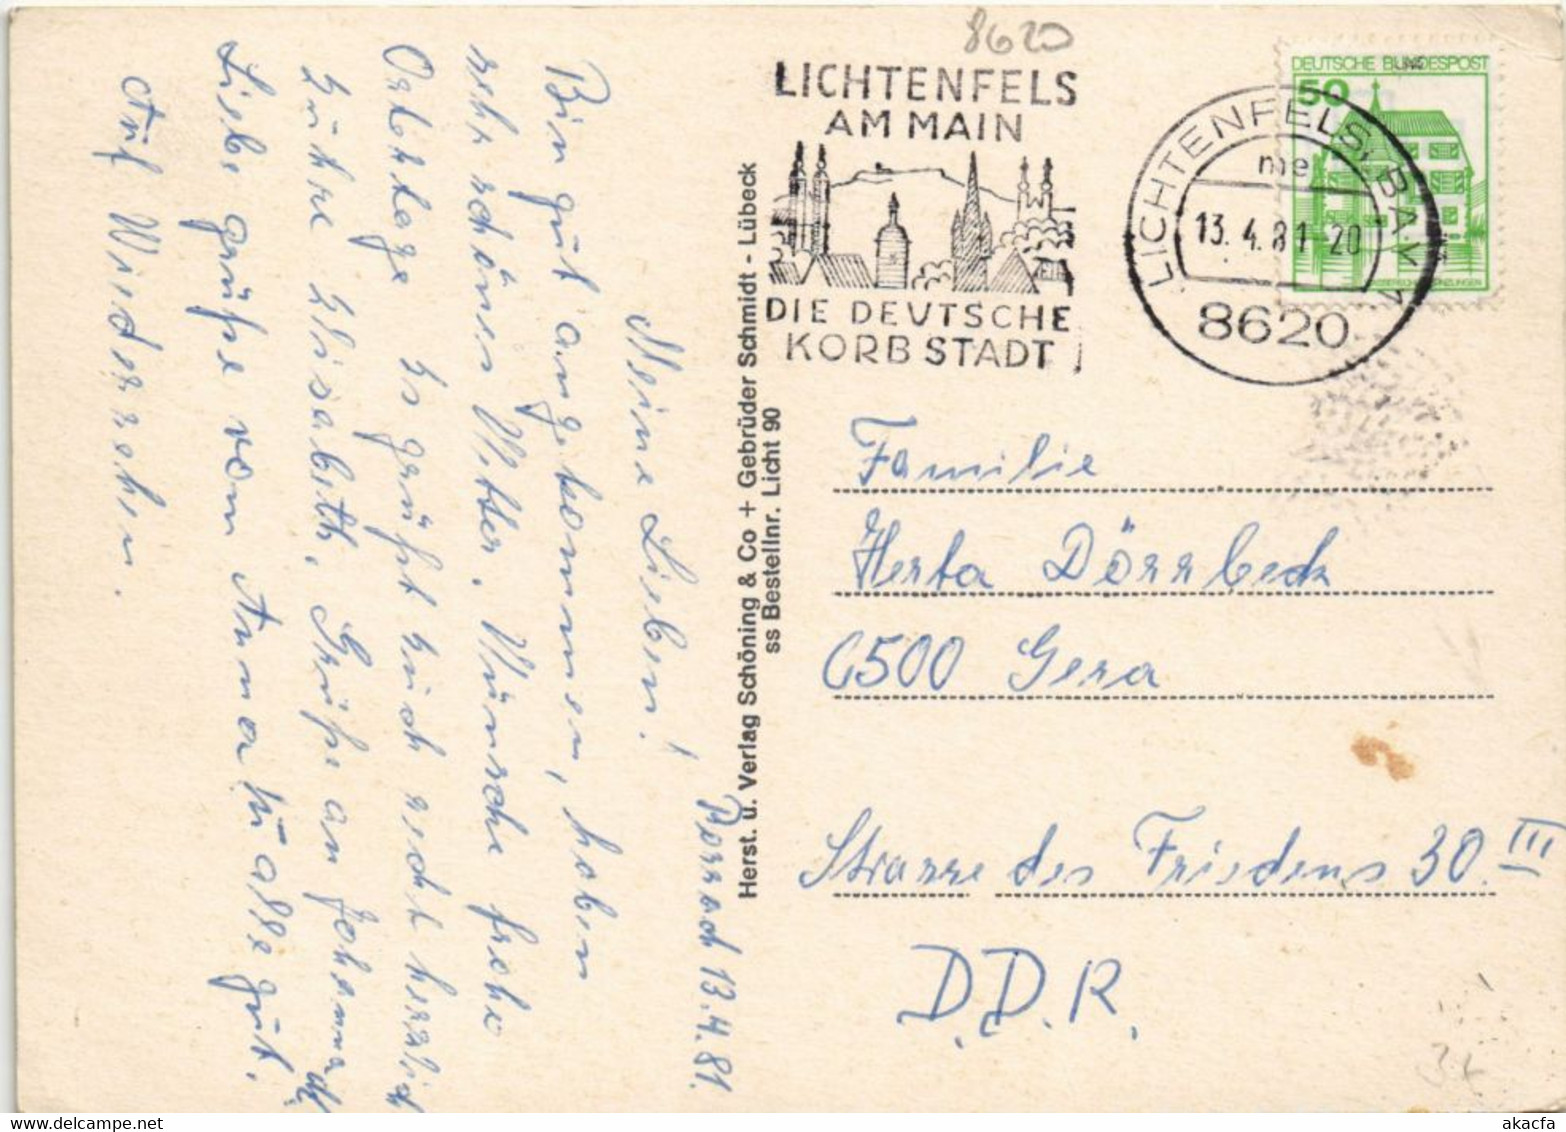 8620
LICHTENFELS
AM MAIN
DIE DEUTSCHE
KORBSTADT
LICHTENFELS, BAY 1
me
13.4.81-20
8620
DEUTSCHE BUNDESPOST
50
Familie
Herta Dörrbeck
6500 Gera
Strasse des Friedens 30. III
D.D.R.
Herst. u. Verlag Schöning & Co + Gebrüder Schmidt - Lübeck
ss Bestellnr. Licht 90
13.4.81.
Meine Lieben!
Bin gut angekommen, haben
sehr schönes Wetter. Wünsche frohe
Ostertage Es grüßt Euch recht herzlich
Eure Elisabeth. Grüße an Johanna
Liebe Grüße von Anna Euch alles gut.
Auf Wiedersehen.
3x
akacfa
www.delcampe.net